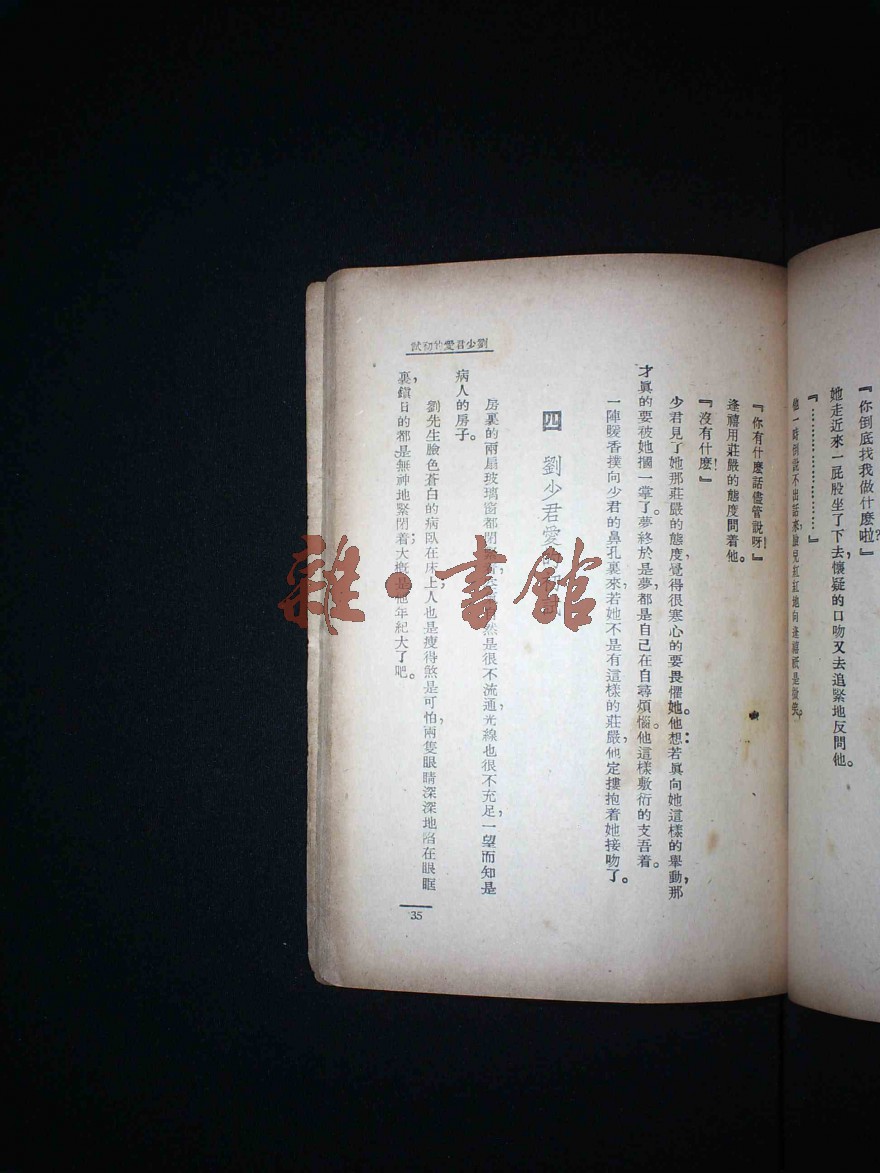 『你倒底找我做什麽啦?』
她走近來一屁股坐了下去,懷疑的口吻又去追緊地反問他。
『…………………』
他一時倒說不出話來,臉兒紅紅地向逢禧祇是微笑。
『你有什麽話儘管說呀!』
逢禧用莊嚴的態度問着他。
『沒有什麽!』
少君見了她那莊嚴的態度,覺得很寒心的要畏懼她。他想:若眞向她這樣的舉動,那
才眞的要被她摑一掌了。夢終於是夢,都是自己在自尋煩惱。他這樣敷衍的支吾着。
一陣暖香撲向少君的鼻孔裏來,若她不是有這樣的莊嚴,他定摟抱着她接吻了。
四 劉少君愛的初試
房裏的兩扇玻璃窗都閉 然是很不流通,光線也很不充足,一望而知是
病人的房子。
劉先生臉色蒼白的病臥在床上,人也是瘦得煞是可怕,兩隻眼睛深深地陷在眼眶
裏,鎭日的都是無神地緊閉着;大概是他年紀大了吧。
劉少君愛的初試
35
雜·書館